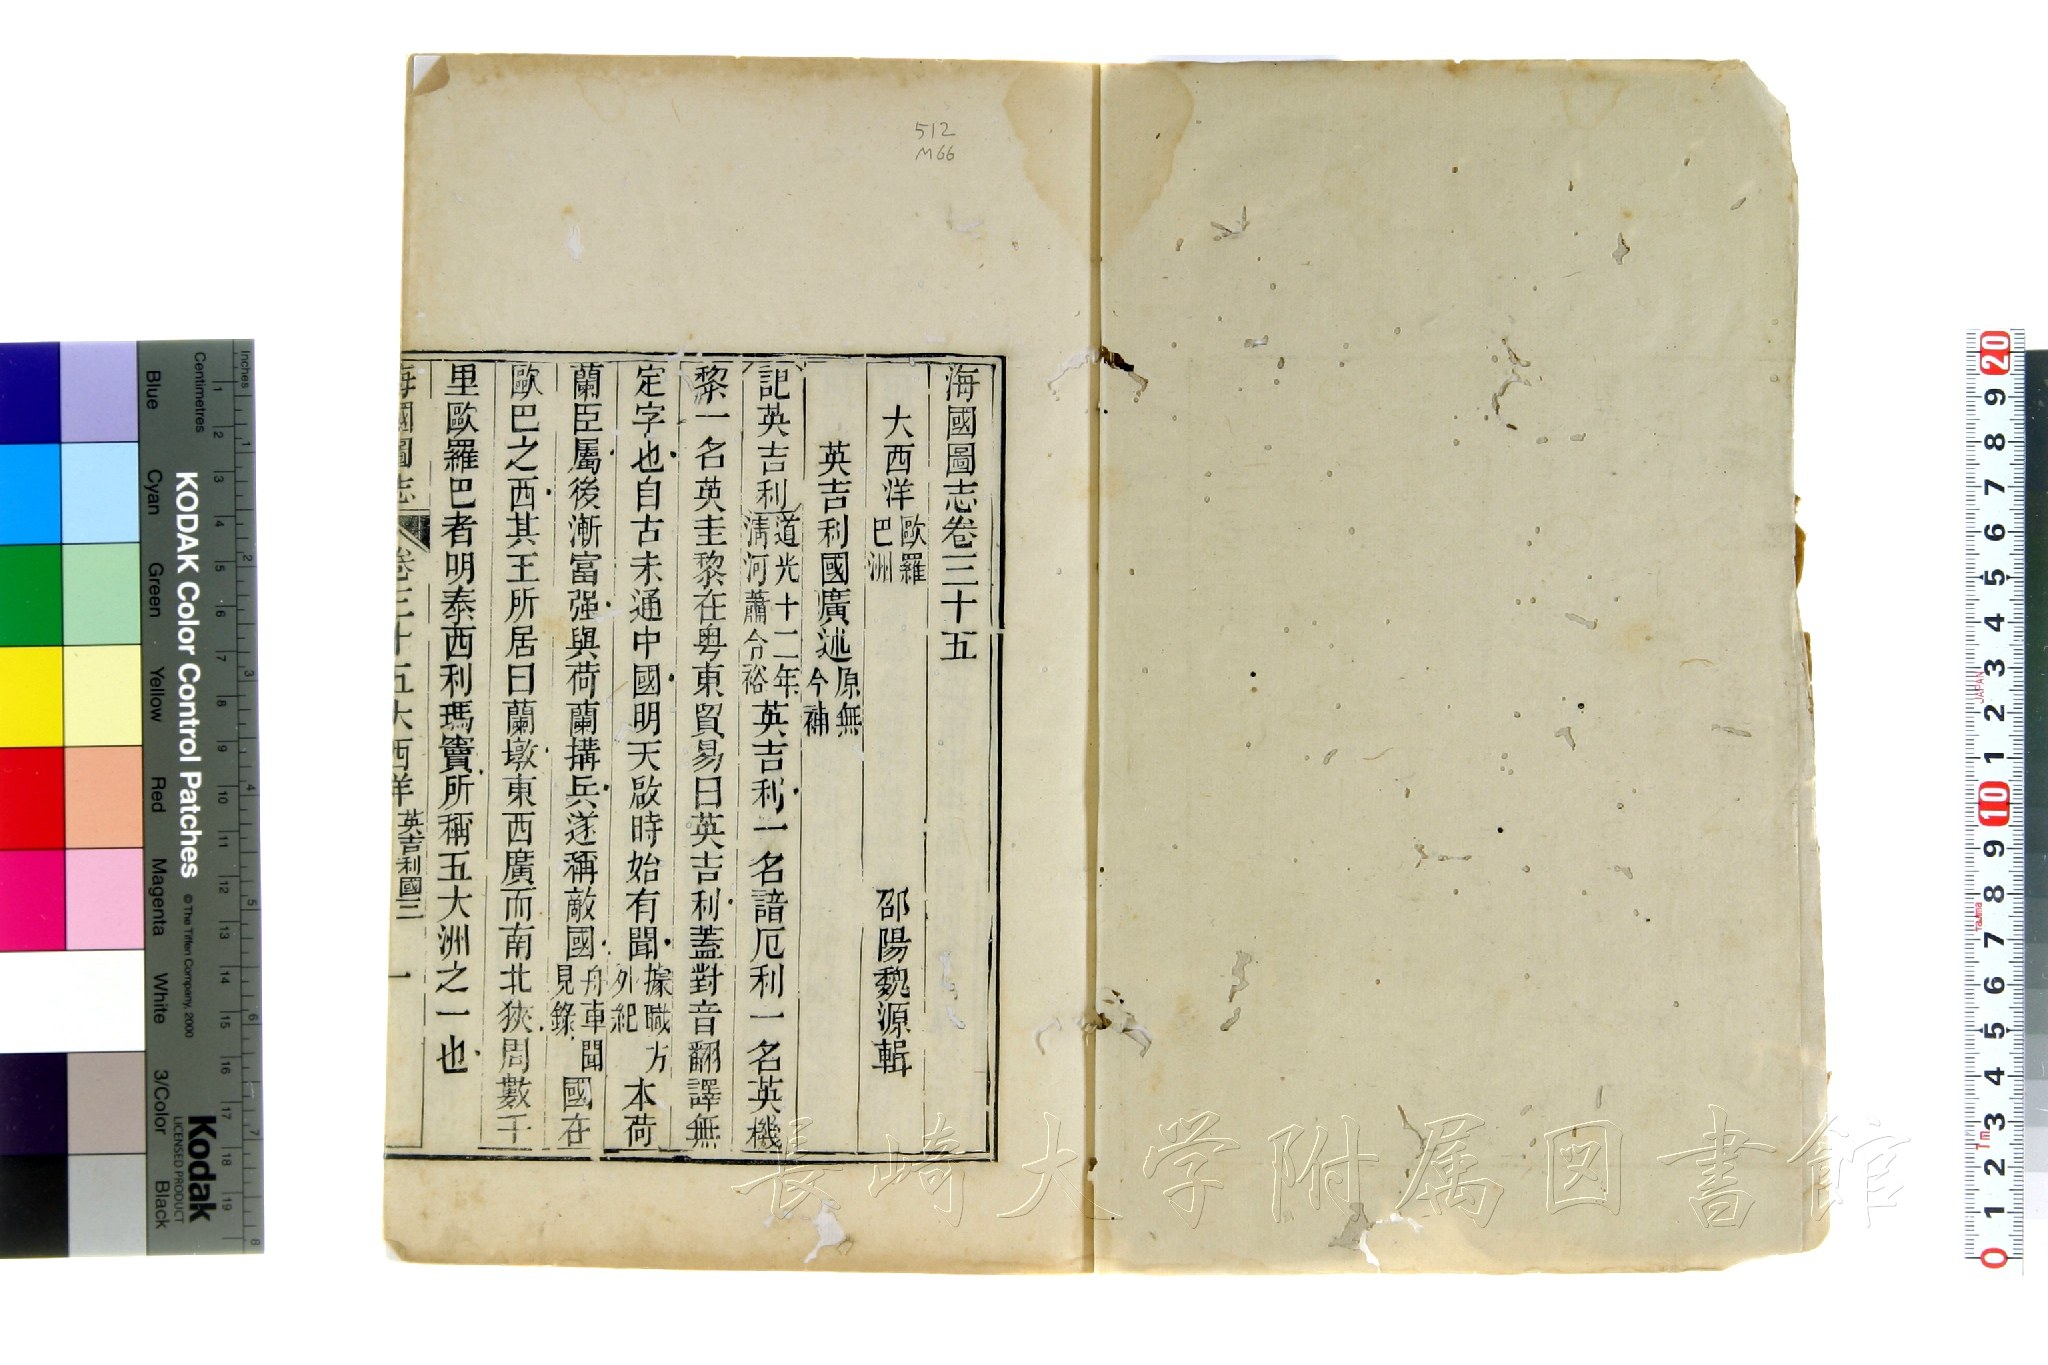 512
M66
海國圖志卷三十五
大西洋歐羅巴洲
邵陽魏源輯
英吉利國廣述原無今補
記英吉利道光十二年淸河蕭令裕英吉利一名諳厄利一名英機
黎一名英圭黎在粤東貿易曰英吉利蓋對音翻譯無
定字也自古未通中國明天啟時始有聞據職方外紀本荷
蘭臣屬後漸富强與荷蘭搆兵遂稱敵國舟車聞見錄國在
歐巴之西其王所居曰蘭墩東西廣而南北狹周數千
里歐羅巴者明泰西利瑪竇所稱五大洲之一也
海國圖志 卷三十五大西洋英吉利國三 一
長崎大学附属図書館
KODAK Color Control Patches
© The Tiffen Company, 2000
Kodak
LICENSED PRODUCT
Inches
Centimetres
1 2 3 4 5 6 7 8 9 10 11 12 13 14 15 16 17 18 19
1 2 3 4 5 6 7 8
Blue
Cyan
Green
Yellow
Red
Magenta
White
3/Color
Black
20 9 8 7 6 5 4 3 2 1 10 9 8 7 6 5 4 3 2 1 0
JAPAN
Tajima
1m